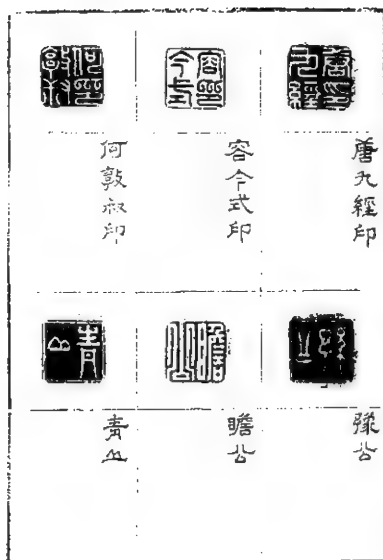 唐九經印
容今式印
何敦叔印
豫公
瞻公
青